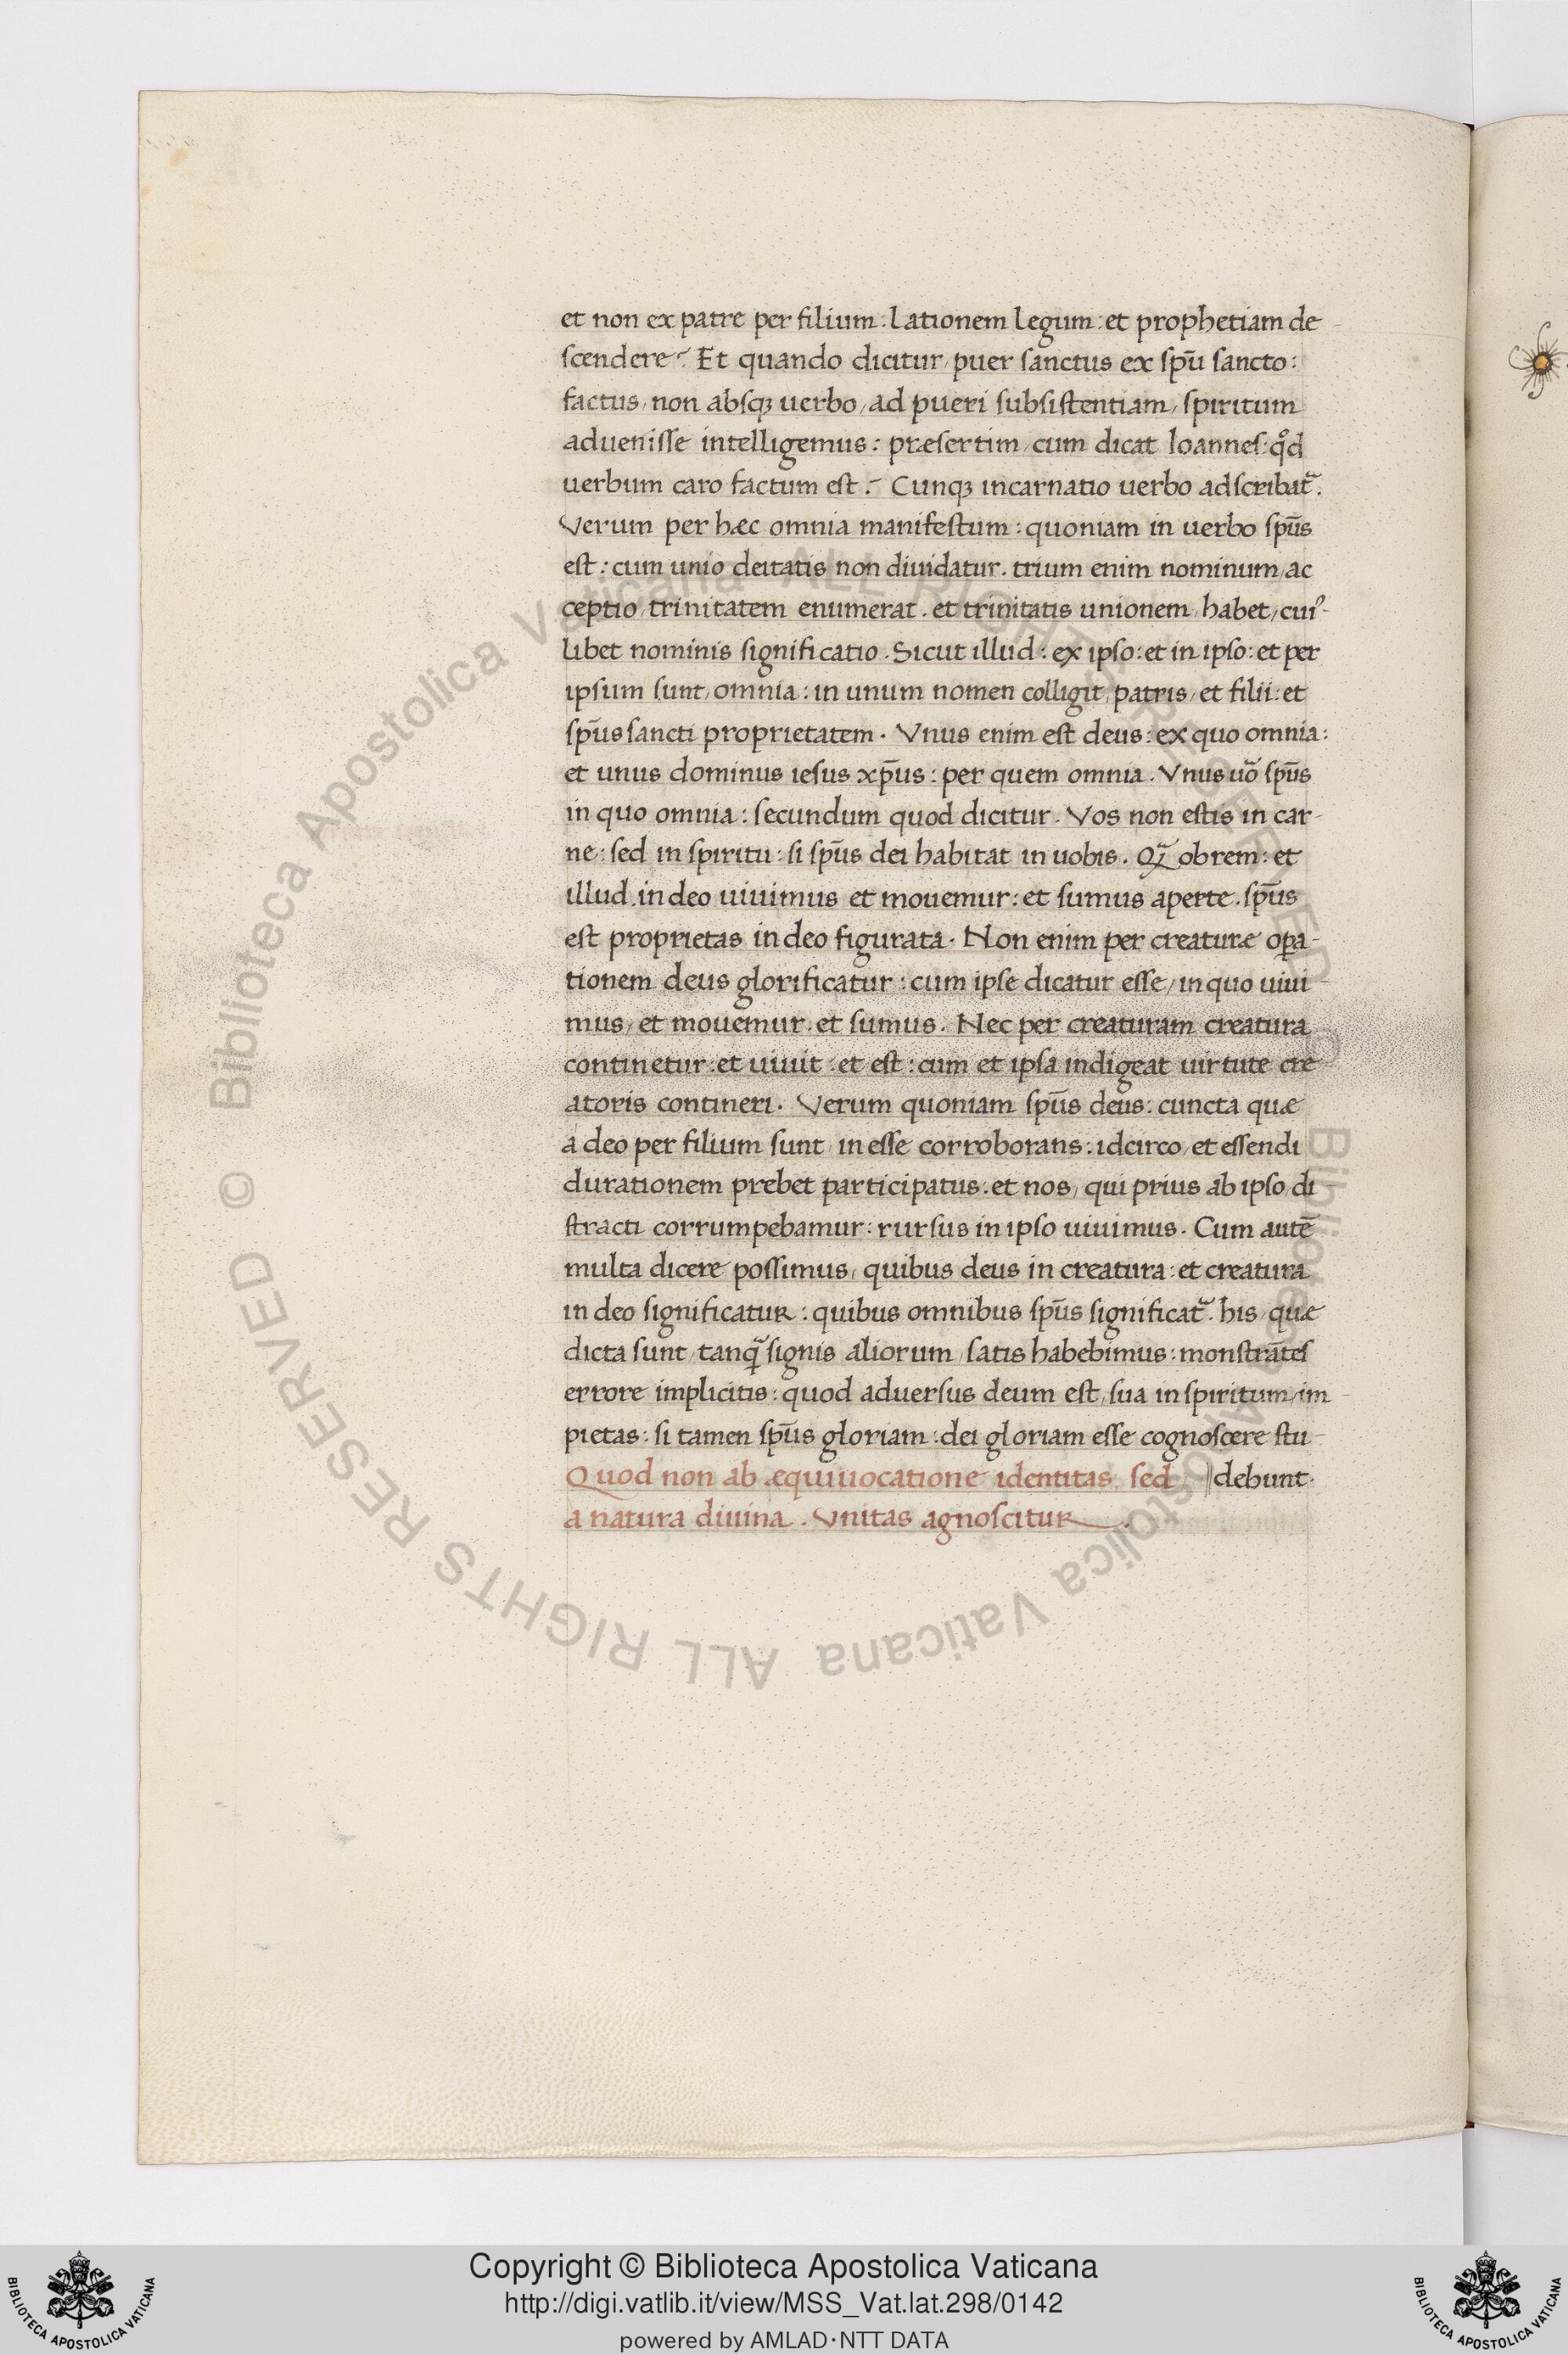 et non ex patre per filium: Lationem Legum: et prophetiam de-
scendere? Et quando dicitur, puer sanctus ex spū sancto:
factus, non absqꝫ uerbo, ad pueri subsistentiam, spiritum
aduenisse intelligemus: præsertim, cum dicat Ioannes: qͦd
uerbum caro factum est? Cunqꝫ incarnatio uerbo adscribat᷑.
Verum per hæc omnia manifestum: quoniam in uerbo spūs
est: cum unio deitatis non diuidatur. trium enim nominum, ac
ceptio, trinitatem enumerat. et trinitatis unionem, habet, cuiꝰ-
libet nominis significatio. Sicut illud: ex ipso: et in ipso: et per
ipsum sunt, omnia: in unum nomen colligit, patris, et filii: et
spūs sancti proprietatem. Vnus enim est deus: ex quo omnia:
et unus dominus iesus xp̄us: per quem omnia. Vnus uō spūs
in quo omnia: secundum quod dicitur. Vos non estis in car-
ne: sed in spiritu: si spūs dei habitat in uobis. Qꝫ̃ obrem: et
illud, in deo uiuimus et mouemur: et sumus aperte. spūs
est proprietas in deo figurata. Non enim per creaturæ oꝑa-
tionem deus glorificatur: cum ipse dicatur esse, in quo uiui-
mus, et mouemur, et sumus. Nec per creaturam creatura
continetur: et uiuit: et est: cum et ipsa indigeat uirtute cre-
atoris contineri. Verum quoniam spūs deus: cuncta quæ
a deo per filium sunt, in esse corroborans: idcirco, et essendi
durationem prebet participatus: et nos, qui prius ab ipso, di-
stracti corrumpebamur: rursus in ipso uiuimus. Cum autē
multa dicere possimus, quibus deus in creatura: et creatura
in deo significatur: quibus omnibus spūs significat᷑. his, quæ
dicta sunt, tanq̃ signis aliorum, satis habebimus: monstrātes
errore implicitis: quod aduersus deum est, sua in spiritum, im-
pietas: si tamen spūs gloriam: dei gloriam esse cognoscere stu-
Quod non ab æquiuocatione identitas sed debunt.
a natura diuina. Vnitas agnoscitur.
© Biblioteca Apostolica Vaticana ALL RIGHTS RESERVED
© Biblioteca Apostolica Vaticana ALL RIGHTS RESERVED
Copyright © Biblioteca Apostolica Vaticana
http://digi.vatlib.it/view/MSS_Vat.lat.298/0142
powered by AMLAD·NTT DATA
BIBLIOTECA APOSTOLICA VATICANA
BIBLIOTECA APOSTOLICA VATICANA